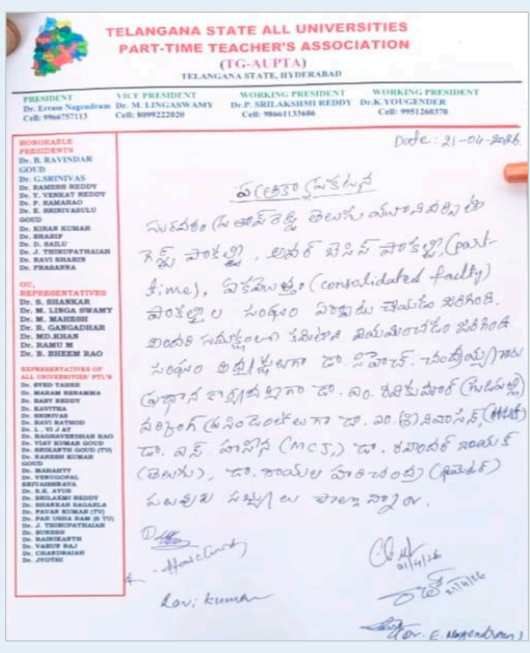 TELANGANA STATE ALL UNIVERSITIES
PART-TIME TEACHER'S ASSOCIATION
(TG-AUPTA)
TELANGANA STATE, HYDERABAD
PRESIDENT
Dr. Erram Nagendram
Cell: 9966757113
VICE PRESIDENT
Dr. M. LINGASWAMY
Cell: 8099222020
WORKING PRESIDENT
Dr.P. SRILAKSHMI REDDY
Cell: 98661133686
WORKING PRESIDENT
Dr.K.YOUGENDER
Cell: 9951260370
HONORABLE
PRESIDENTS
Dr. B. RAVINDAR
GOUD
Dr. G.SRINIVAS
Dr. RAMESH REDDY
Dr. Y. VENKAT REDDY
Dr. P. RAMARAO
Dr. E. SRINIVASULU
GOUD
Dr. KIRAN KUMAR
Dr. SHARIF
Dr. D. SAILU
Dr. J. THIRUPATHAIAH
Dr. RAVI SHARIN
Dr. PRASANNA
OU,
REPRESENTATIVES
Dr. S. SHANKAR
Dr. M. LINGA SWAMY
Dr. M. MAHESH
Dr. R. GANGADHAR
Dr. MD.KHAN
Dr. RAMU M
Dr. B. BHEEM RAO
REPRESENTATIVES OF
ALL UNIVERSITIES' PTL'S
Dr. SYED TAHER
Dr. BABY REDDY
Dr. KAVITHA
Dr. SRINIVAS
Dr. RAVI RATHOD
Dr. RAGHAVENDHAR RAO
Dr. VIJAY KUMAR GOUD
Dr. SRIKANTH GOUD (TU)
Dr. RAKESH KUMAR
GOUD
Dr. VENUGOPAL
Dr. SRILAXMI REDDY
Dr. PAVAN KUMAR (TU)
Dr. J. THIRUPATHAIAH
Dr. SURESH
Dr. RAJNIKANTH
Dr. VARUN RAJ
Dr. CHANDRAIAH
Dr. JYOTHI
Date: 21-04-2026
పత్రికా ప్రకటన
సురవరం ప్రతాప్ రెడ్డి తెలుగు యూనివర్సిటీ
గెస్ట్ ఫాకల్టీ, అవర్ బేసిస్ ఫాకల్టీ, (part-
time), ఏకమొత్తం (consolidated faculty)
ఫాకల్టీ ల సంఘం ఏర్పాటు చేయడం జరిగింది.
అందరి సమక్షంలో కమిటీని నియమించడం జరిగింది
సంఘం అధ్యక్షులుగా డా. సిహెచ్. చంద్రయ్య గారు
ప్రధాన కార్యదర్శిగా డా. ఎం. రవికుమార్
వర్కింగ్ ప్రెసిడెంట్లుగా డా. ఎం. శ్రీనివాసన్,
డా. ఎస్. హసీన (MCJ), డా. రవీందర్ నాయక్
(తెలుగు), డా. రాయల హరిచంద్ర (థియేటర్)
పలువురు సభ్యులు
21/4/26
Ravi kumar
21/4/26
(Dr. E. Nagendram)